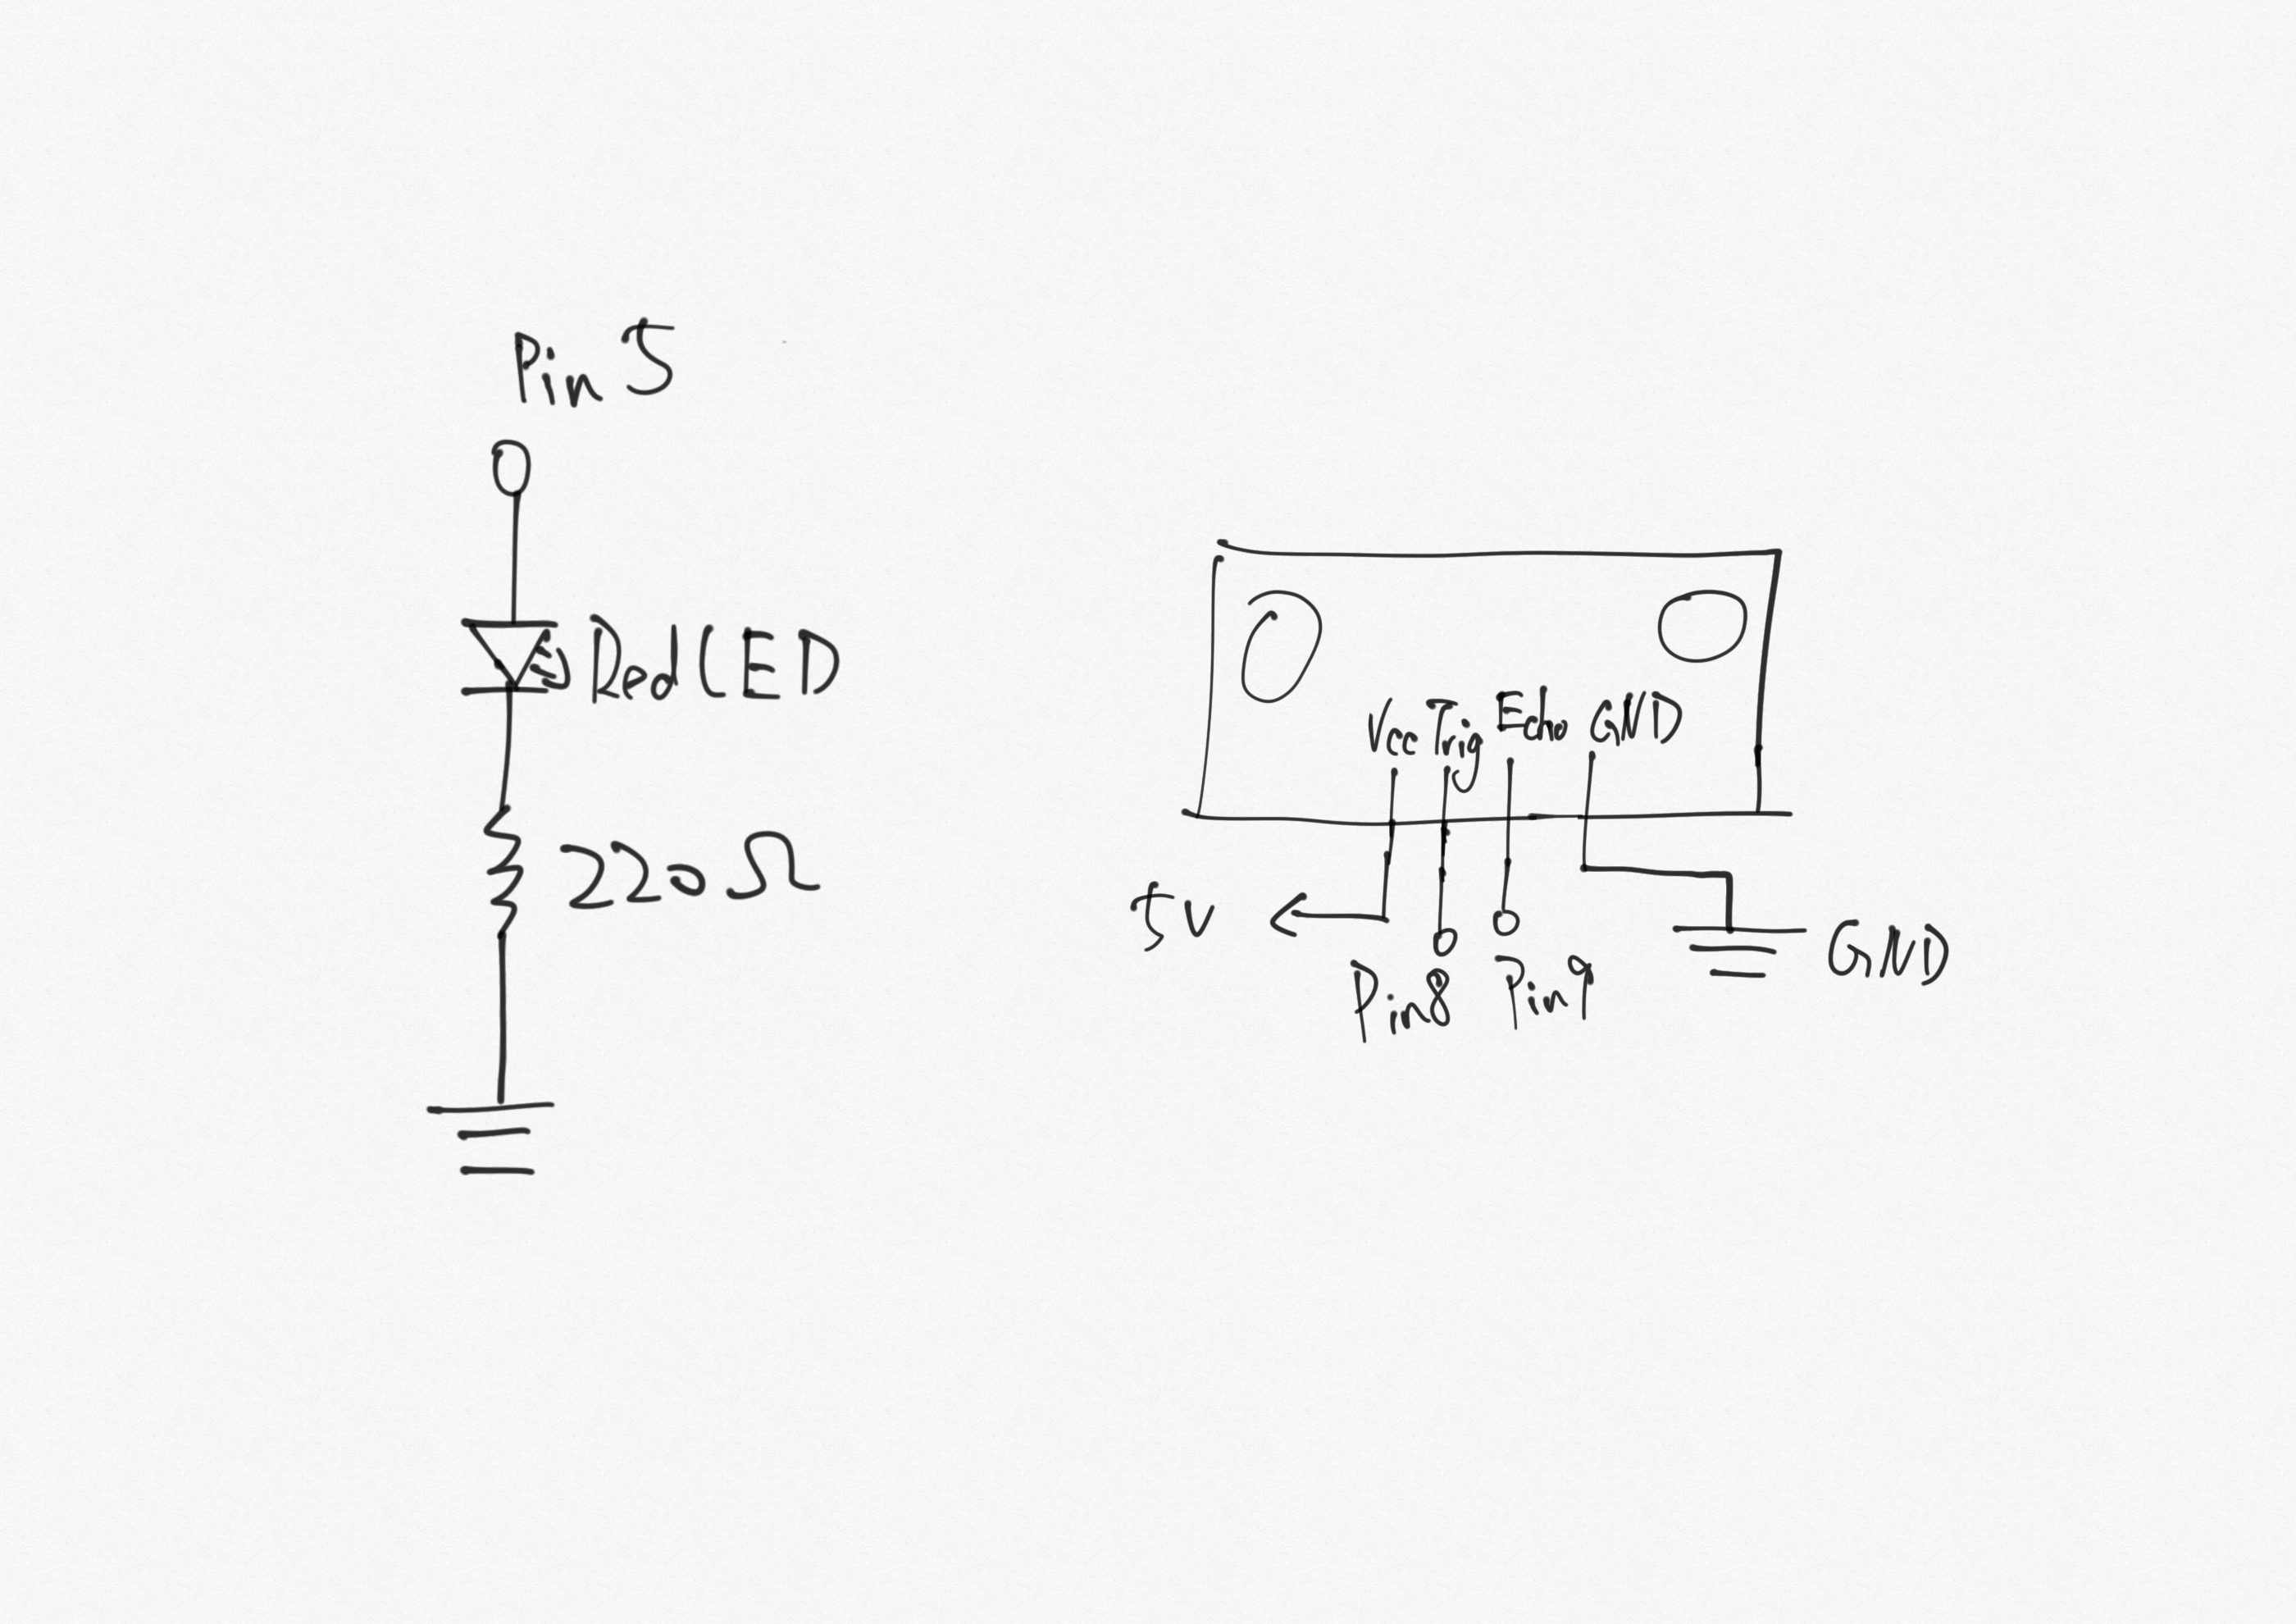 Pin 5
Red LED
220 Ω
Vcc Trig Echo GND
5V
Pin8 Pin9
GND